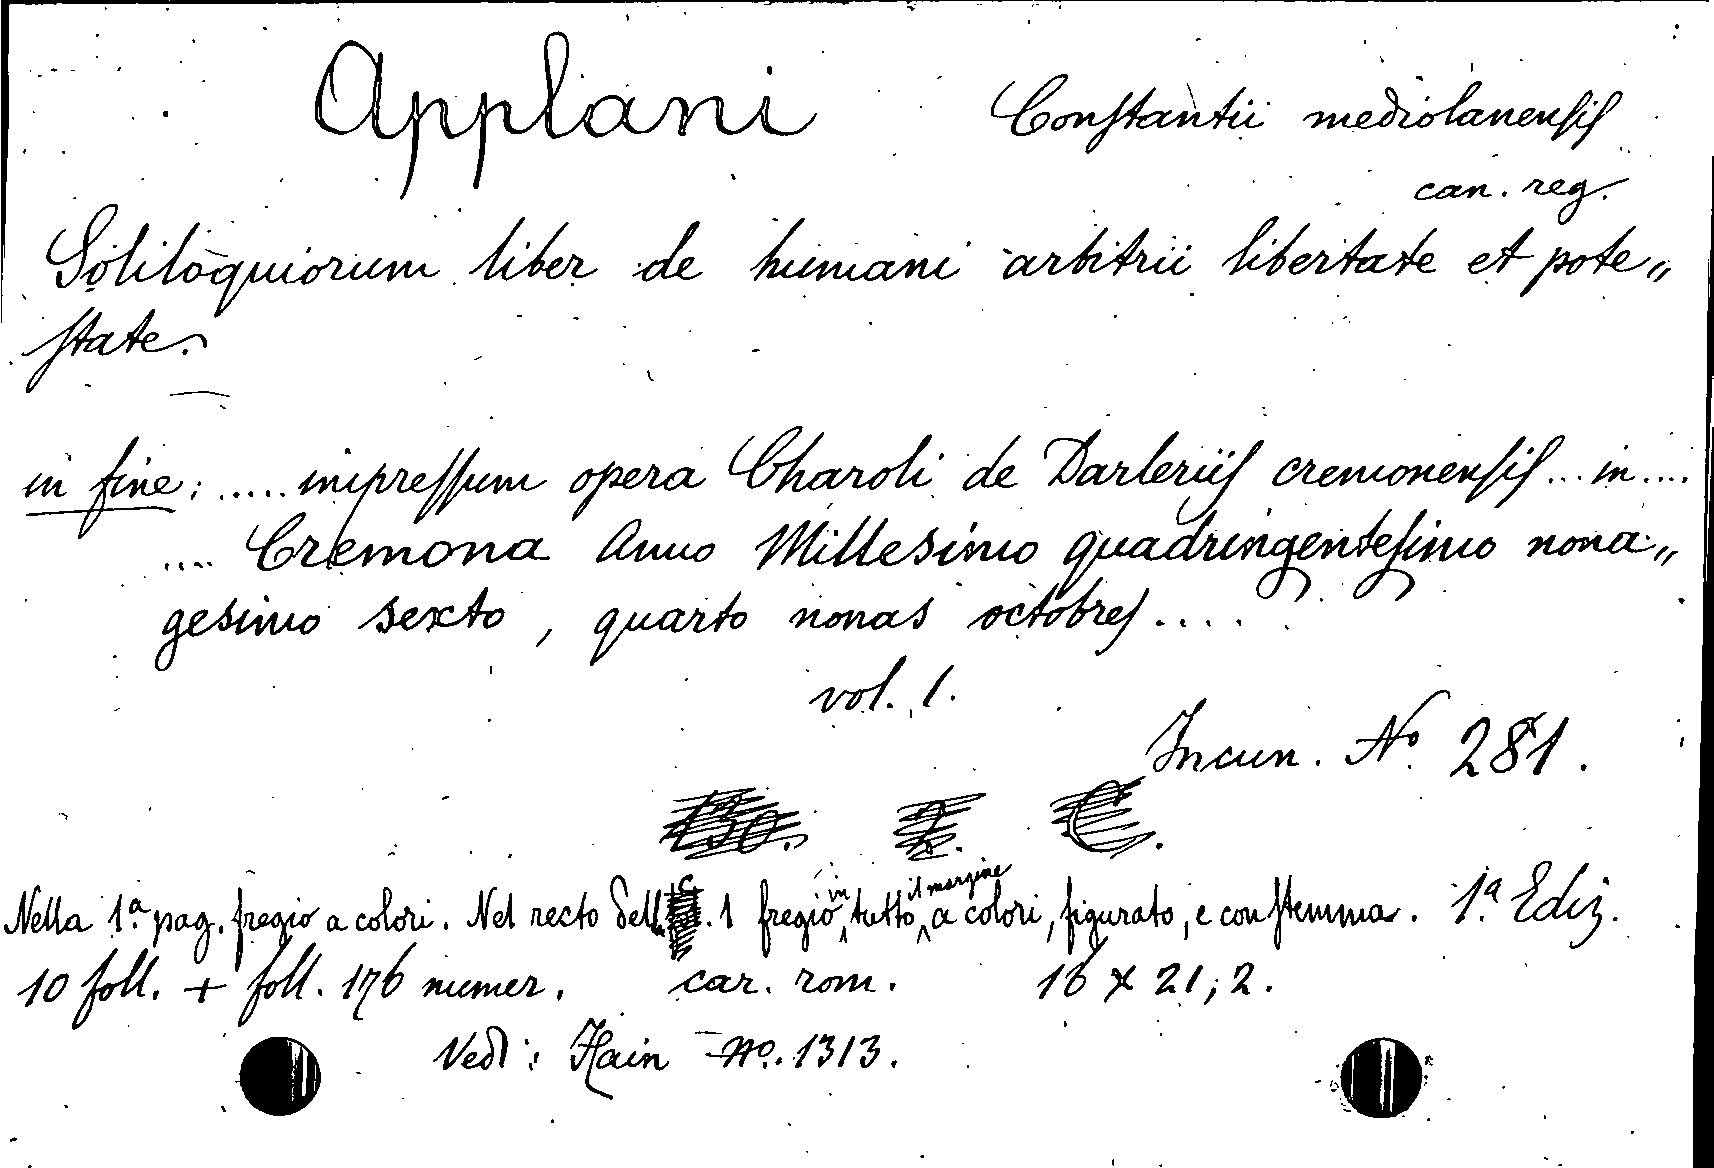 Applani Constantii mediolanensis
can. reg.
Soliloquiorum liber de humani arbitrii libertate et pote„
state.
in fine: ..... impressum opera Charoli de Darleriis cremonensis ... in ....
.... Cremona Anno Millesimo quadringentesimo nona„
gesimo sexto, quarto nonas octobres ....
vol. 1.
Incun. Nº 281.
Nella 1ª pag. fregio a colori. Nel recto dell c. 1 fregio in tutto il margine a colori, figurato, e con stemma. 1ª Ediz.
10 foll. + foll. 176 numer. car. rom. 16 x 21,2.
Vedi: Hain Nº. 1313.